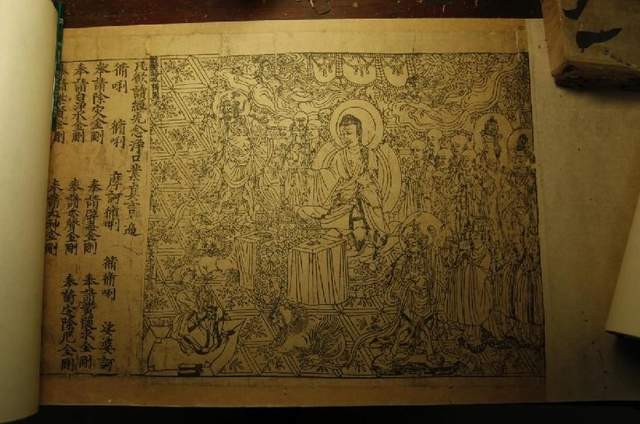 凡欲讀經先念淨口業真言一遍
脩唎 脩唎 摩訶脩唎 脩脩唎 娑婆訶
奉請除灾金剛 奉請辟毒金剛 奉請黃隨求金剛
奉請白淨水金剛 奉請赤聲金剛 奉請定除厄金剛
奉請紫賢金剛 奉請大神金剛